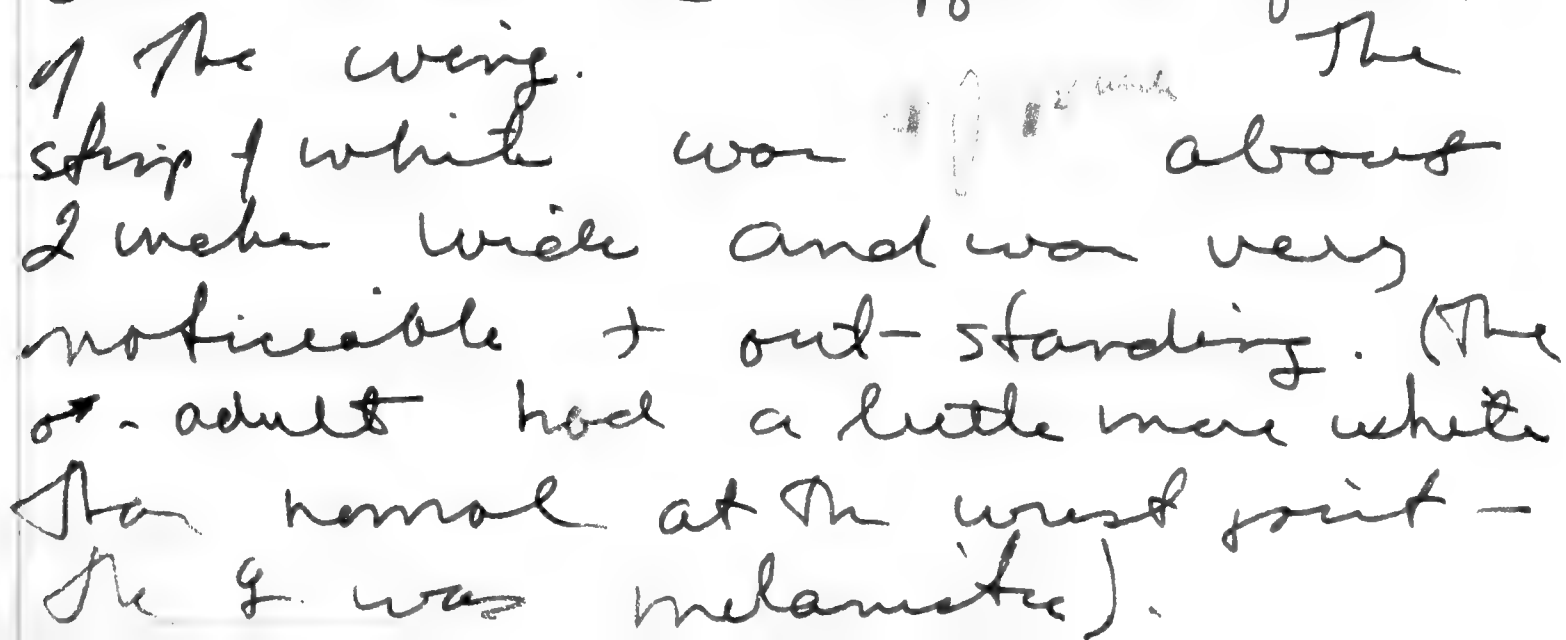 of the wing. The
strip of white was about
2 inches wide and was very
noticeable + out-standing. (The
♂ - adult had a little more white
than normal at the wrist joint -
the ♀ was melanistic).